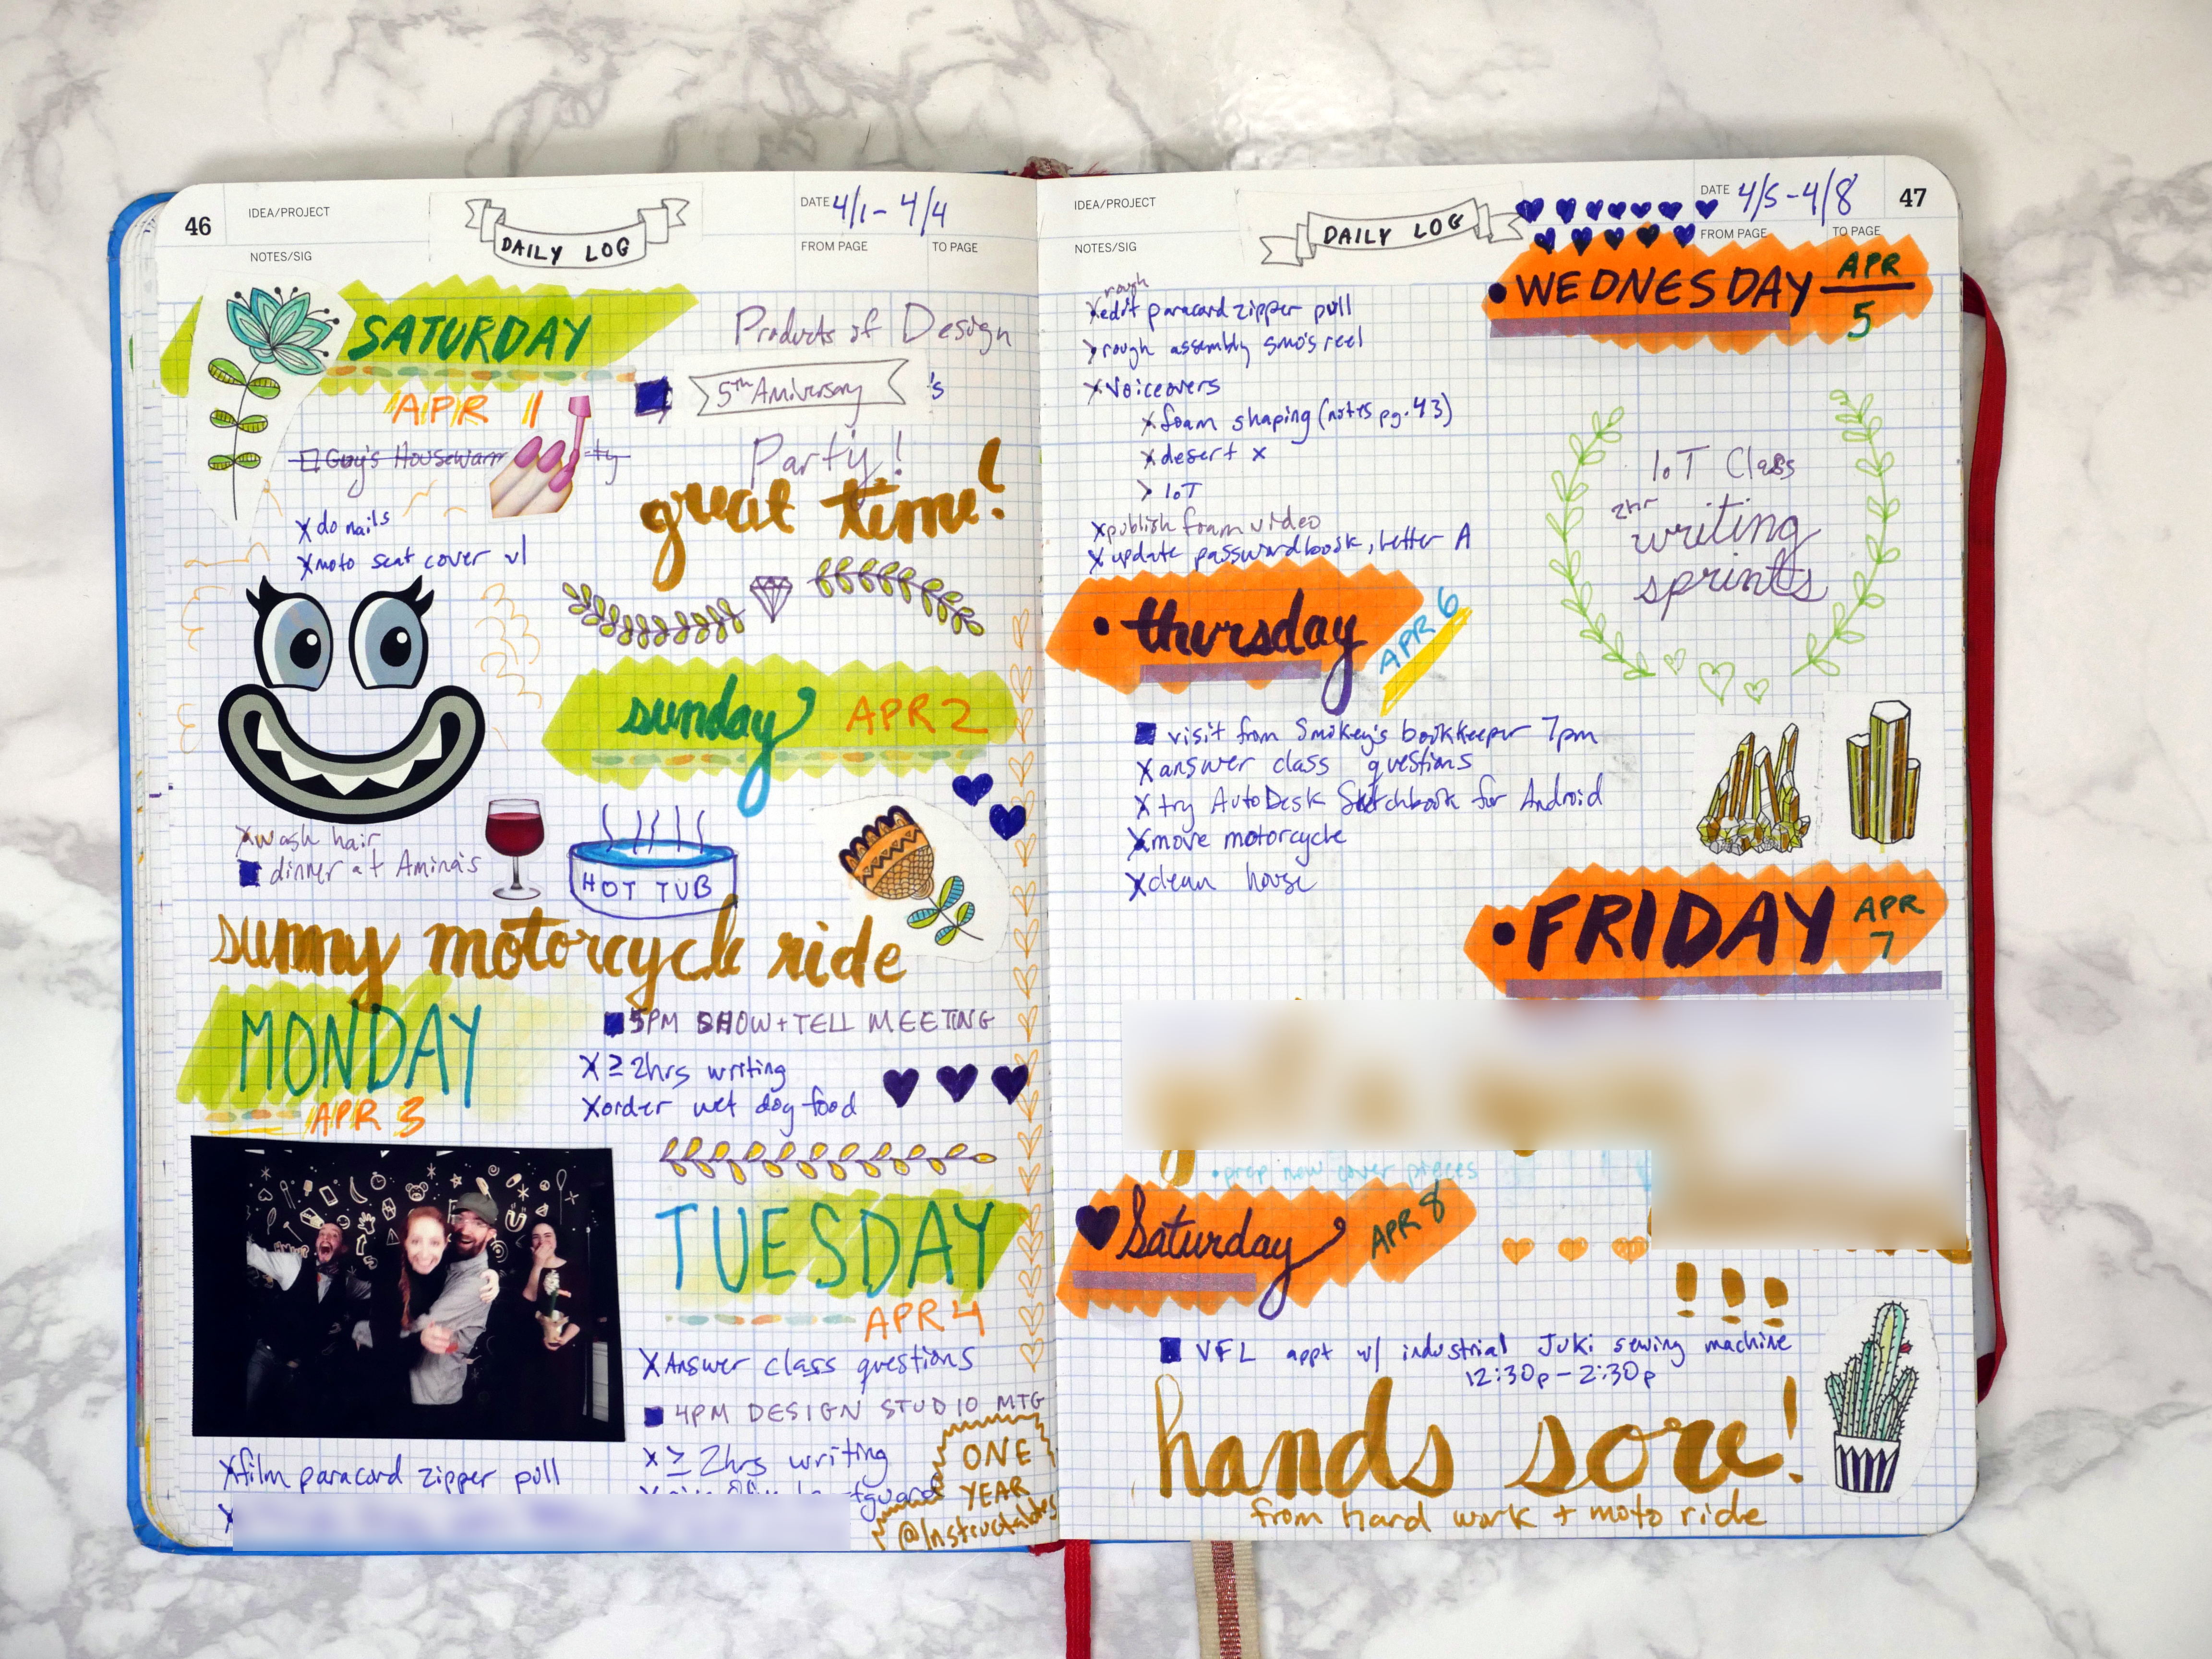 46
IDEA/PROJECT
NOTES/SIG
DAILY LOG
DATE 4/1 - 4/4
FROM PAGE
TO PAGE
SATURDAY
APR 1
Guy's Housewarm
ty
X do nails
X moto seat cover v1
Products of Design
5th Aniversary 's
Party!
great time!
sunday APR 2
X wash hair
dinner at Amina's
HOT TUB
sunny motorcycle ride
MONDAY
APR 3
5PM SHOW + TELL MEETING
X ≥ 2hrs writing
X order wet dog food
X film paracord zipper pull
X
TUESDAY
APR 4
X Answer class questions
4PM DESIGN STUDIO MTG
X ≥ 2hrs writing
ONE
YEAR
@Instructables
IDEA/PROJECT
NOTES/SIG
DAILY LOG
DATE 4/5 - 4/8
FROM PAGE
TO PAGE
47
WEDNESDAY APR 5
rough
X edit paracord zipper pull
> rough assembly smo's reel
X Voiceovers
X foam shaping (notes pg. 43)
X desert x
> IoT
X publish foam video
X update password book, letter A
IoT Class
2hr
writing
sprints
thursday APR 6
visit from Smokey's bookkeeper 7pm
X answer class questions
X try AutoDesk Sketchbook for Android
X move motorcycle
X clean house
FRIDAY APR 7
• prep new cover pieces
Saturday APR 8
VFL appt w/ industrial Juki sewing machine
12:30p - 2:30p
hands sore!
from hard work + moto ride